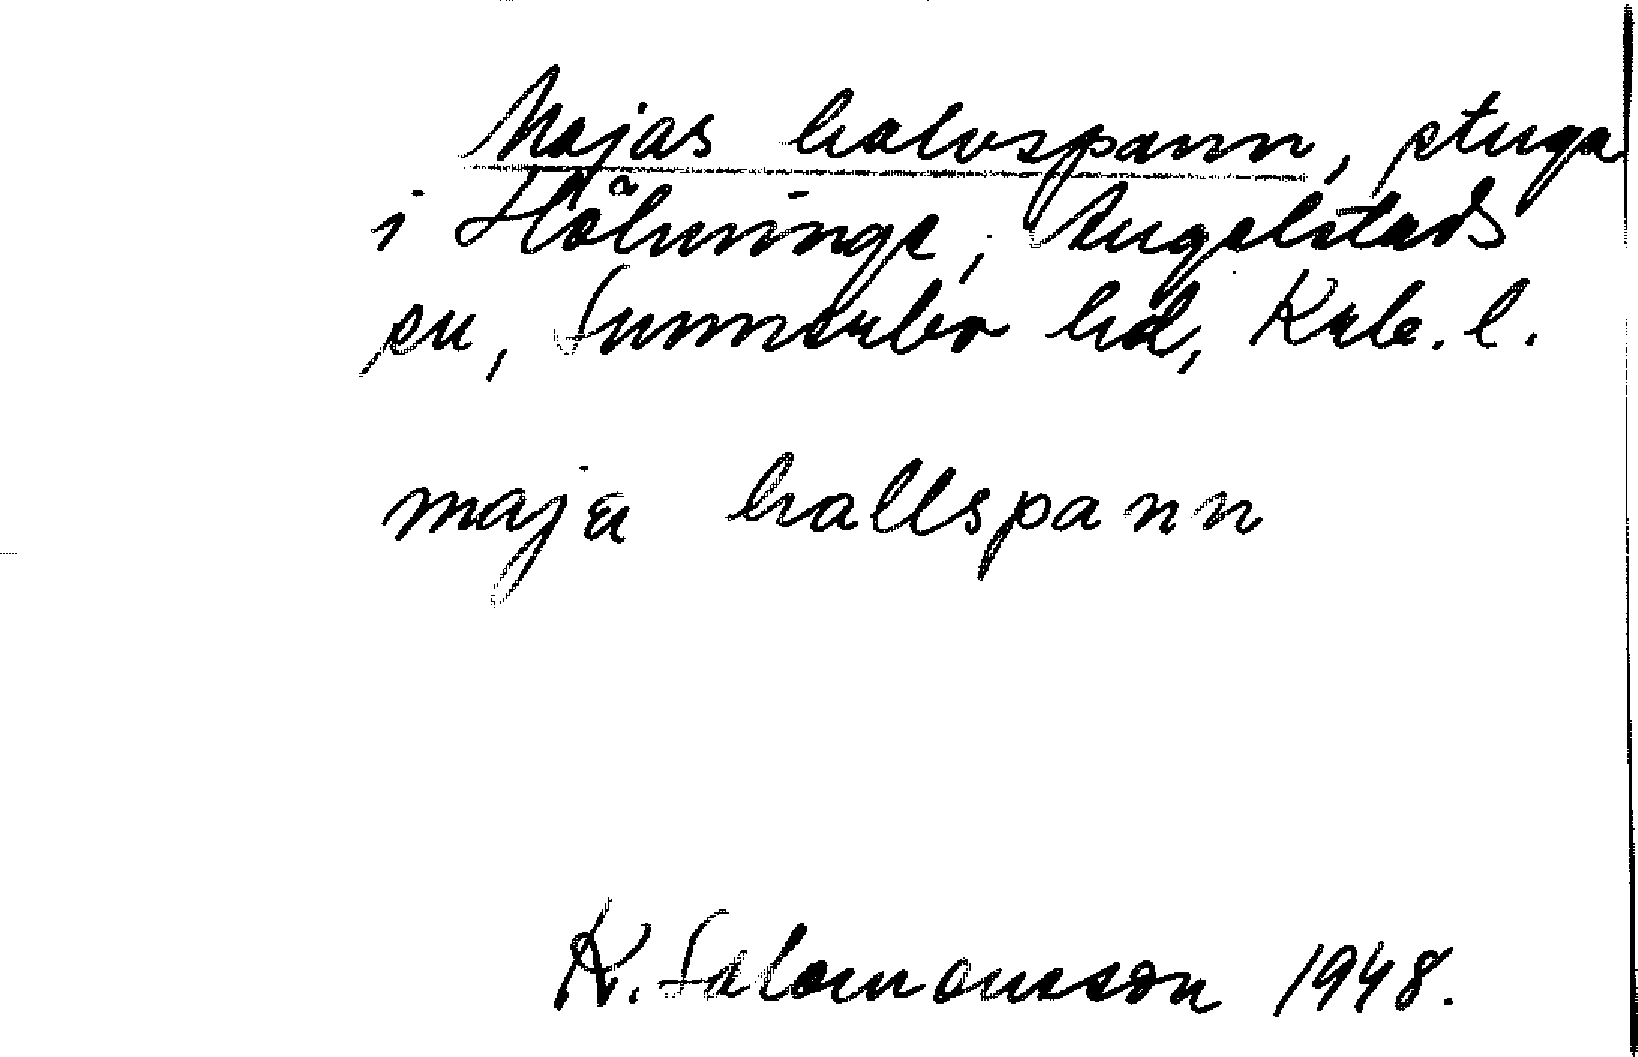 Majas halvspann, stuga
i Hölminge, Angelstads
sn, Sunnerbo hd, Krb. l.
maja hallspann
K. Salomonsson 1948.